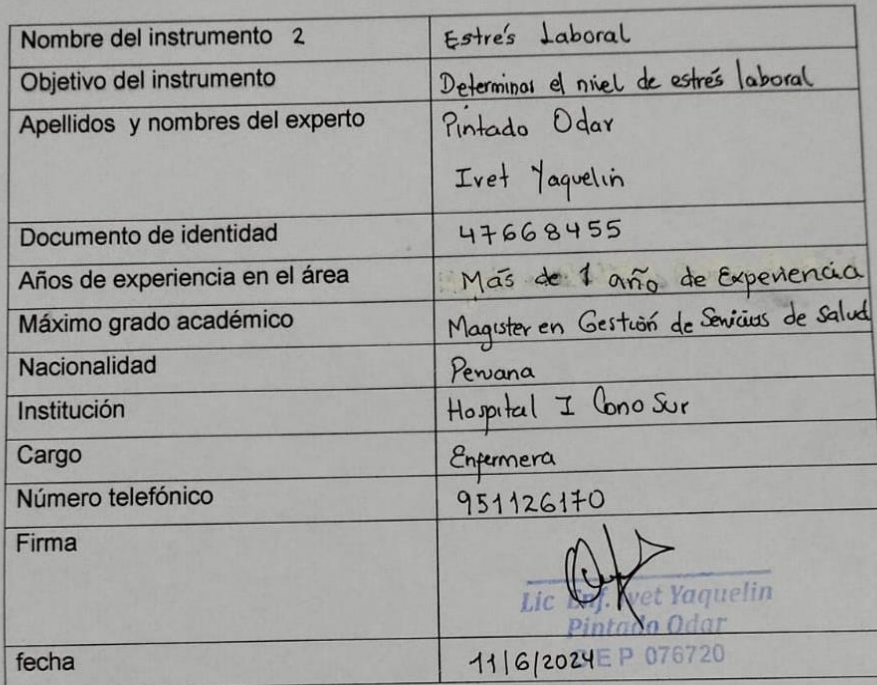 Nombre del instrumento 2 Estrés Laboral
Objetivo del instrumento Determinar el nivel de estrés laboral
Apellidos y nombres del experto Pintado Odar
Ivet Yaquelin
Documento de identidad 47668455
Años de experiencia en el área Más de 1 año de Experiencia
Máximo grado académico Magister en Gestión de Servicios de Salud
Nacionalidad Peruana
Institución Hospital I Cono Sur
Cargo Enfermera
Número telefónico 951126170
Firma
Lic Enf. Ivet Yaquelin
Pintado Odar
fecha 11/6/2024 EP 076720